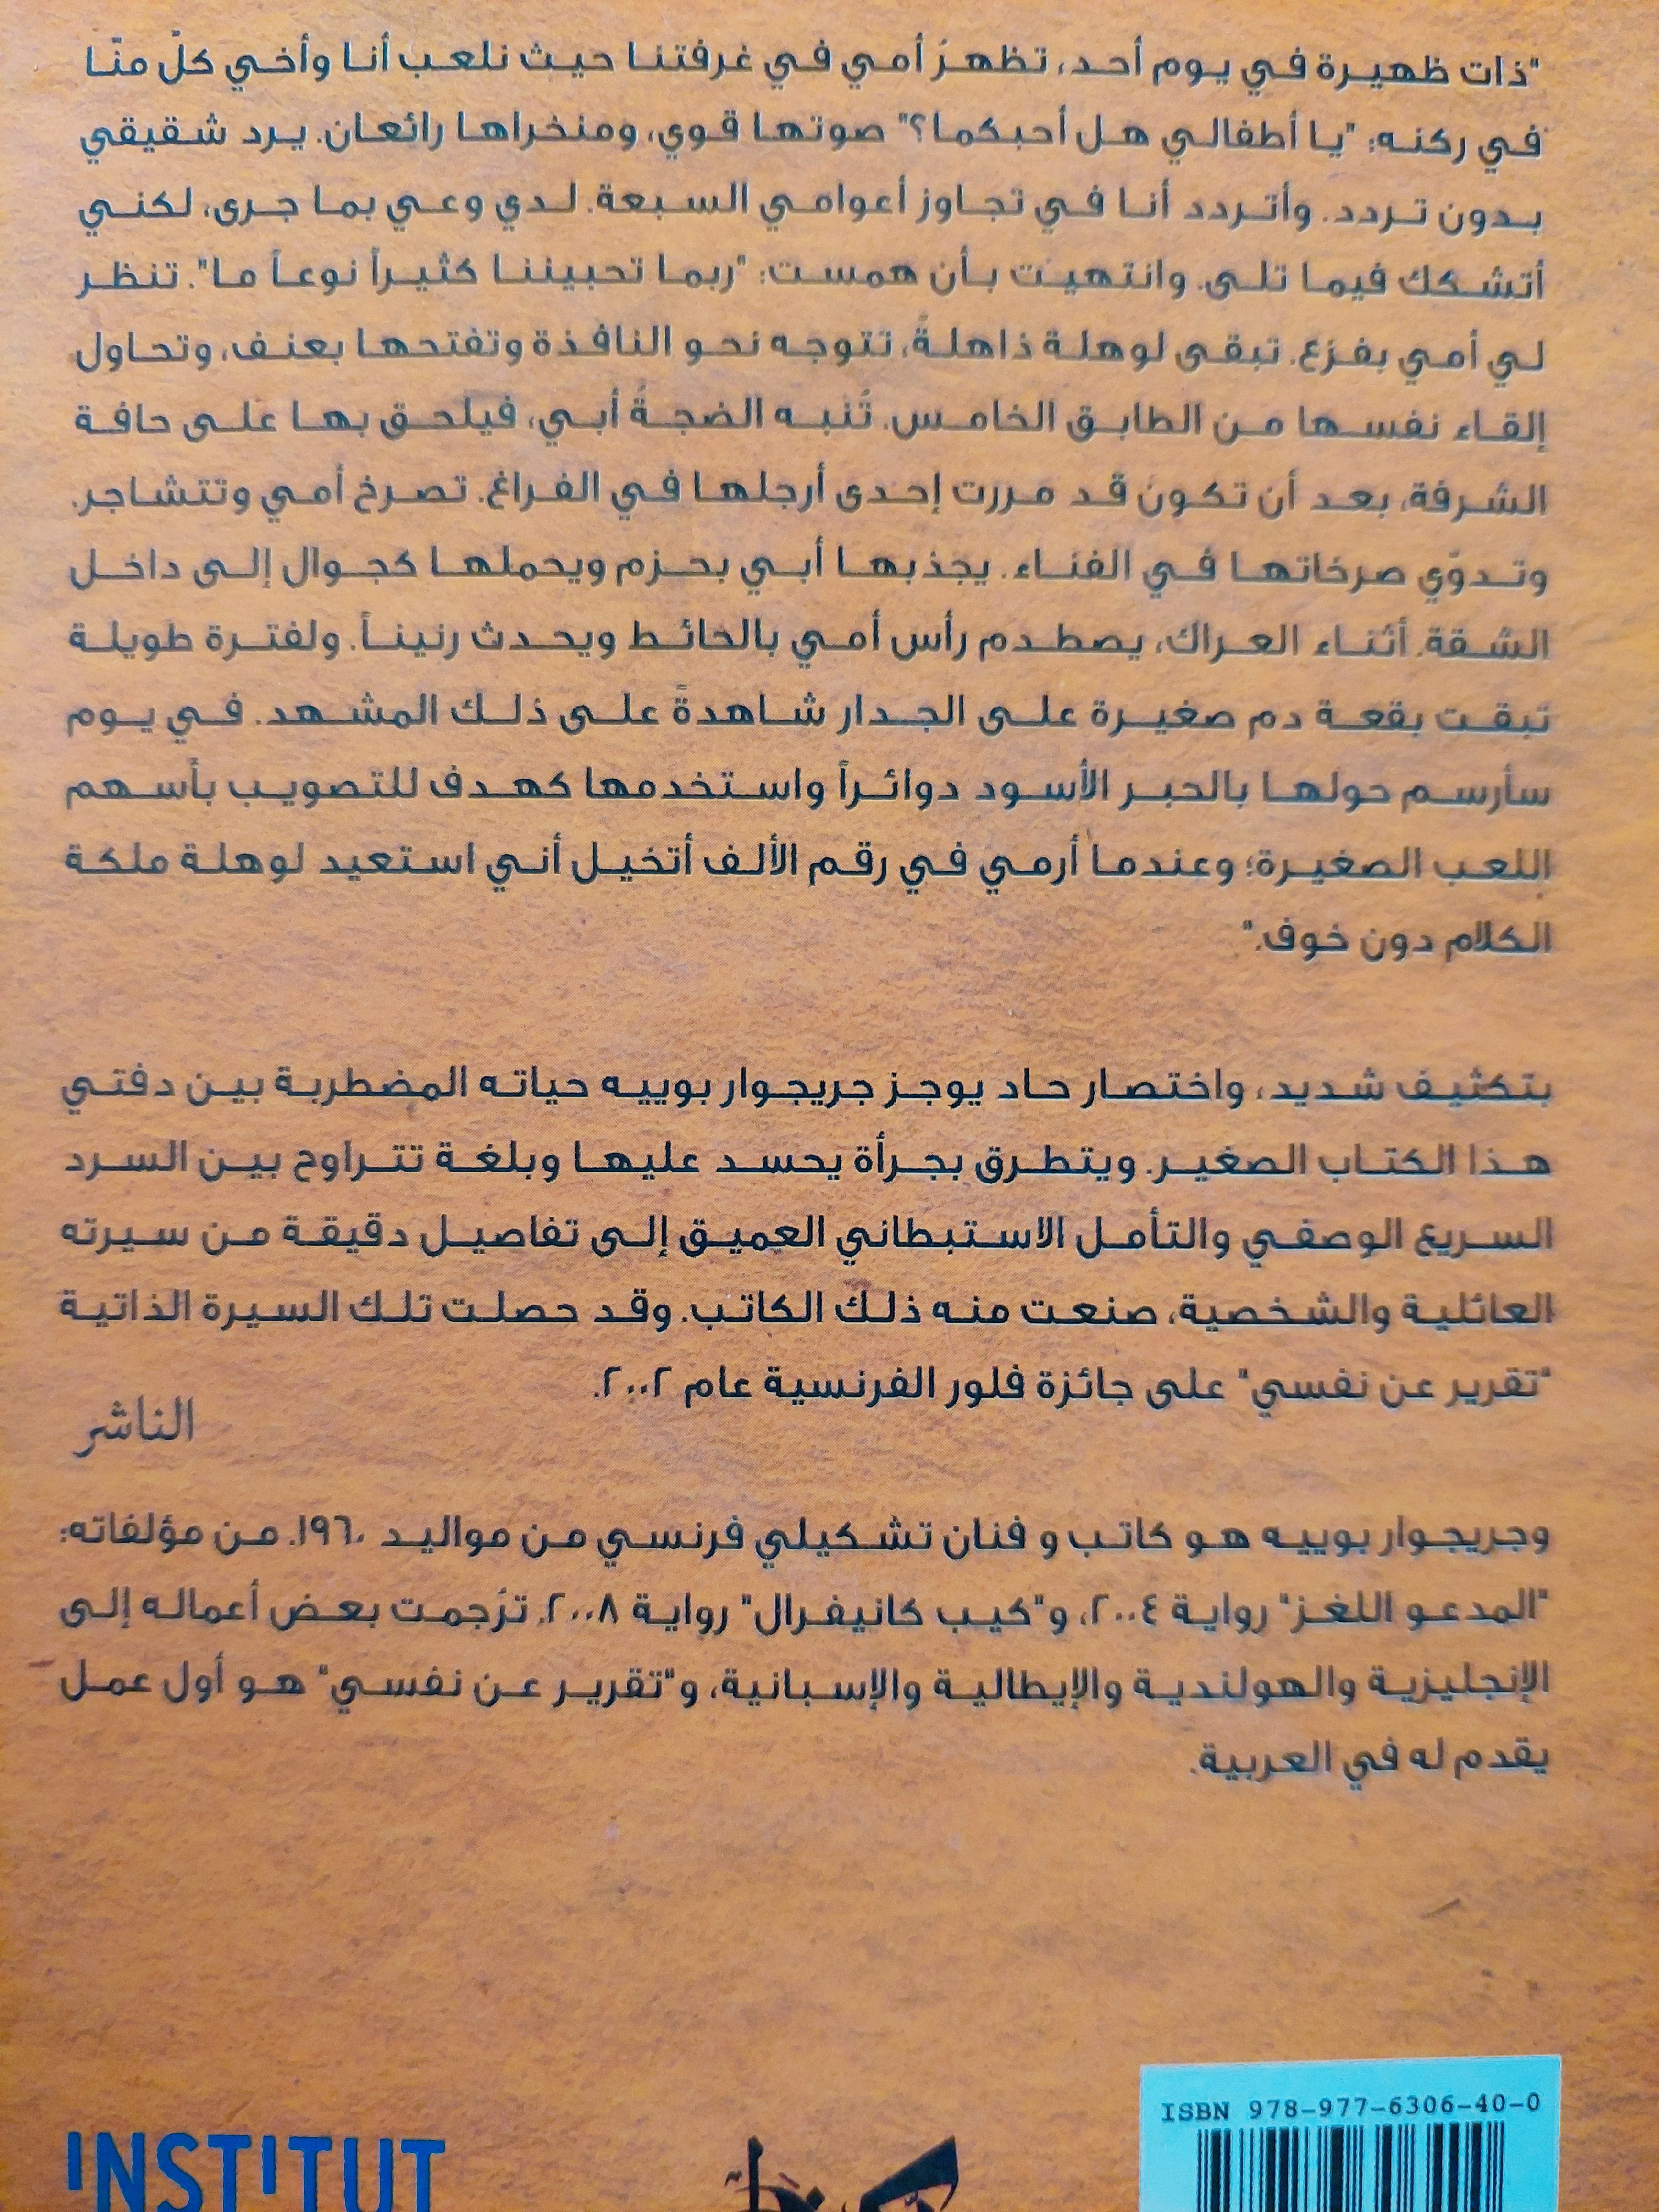 "ذات ظهيرة في يوم أحد، تظهرُ أمي في غرفتنا حيث نلعب أنا وأخي كلّ منّا
في ركنه: "يا أطفالي هل أحبكما؟" صوتها قوي، ومنخراها رائعان. يرد شقيقي
بدون تردد. وأتردد أنا في تجاوز أعوامي السبعة. لدي وعي بما جرى، لكني
أتشكك فيما تلى. وانتهيت بأن همست: "ربما تحبيننا كثيراً نوعاً ما". تنظر
لي أمي بفزع. تبقى لوهلة ذاهلةً، تتوجه نحو النافذة وتفتحها بعنف، وتحاول
إلقاء نفسها من الطابق الخامس. تُنبه الضجةُ أبي، فيلحق بها على حافة
الشرفة، بعد أن تكون قد مررت إحدى أرجلها في الفراغ. تصرخ أمي وتتشاجر.
وتدوّي صرخاتها في الفناء. يجذبها أبي بحزم ويحملها كجوال إلى داخل
الشقة. أثناء العراك، يصطدم رأس أمي بالحائط ويحدث رنيناً. ولفترة طويلة
تبقت بقعة دم صغيرة على الجدار شاهدةً على ذلك المشهد. في يوم
سأرسم حولها بالحبر الأسود دوائراً واستخدمها كهدف للتصويب بأسهم
اللعب الصغيرة؛ وعندما أرمي في رقم الألف أتخيل أني استعيد لوهلة ملكة
الكلام دون خوف."
بتكثيف شديد، واختصار حاد يوجز جريجوار بوييه حياته المضطربة بين دفتي
هذا الكتاب الصغير. ويتطرق بجرأة يحسد عليها وبلغة تتراوح بين السرد
السريع الوصفي والتأمل الاستبطاني العميق إلى تفاصيل دقيقة من سيرته
العائلية والشخصية، صنعت منه ذلك الكاتب. وقد حصلت تلك السيرة الذاتية
"تقرير عن نفسي" على جائزة فلور الفرنسية عام ٢٠٠٢.
الناشر
وجريجوار بوييه هو كاتب و فنان تشكيلي فرنسي من مواليد ١٩٦٠. من مؤلفاته:
"المدعو اللغز" رواية ٢٠٠٤، و"كيب كانيفرال" رواية ٢٠٠٨. تُرجمت بعض أعماله إلى
الإنجليزية والهولندية والإيطالية والإسبانية، و"تقرير عن نفسي" هو أول عمل
يقدم له في العربية.
ISBN 978-977-6306-40-0
INSTITUT